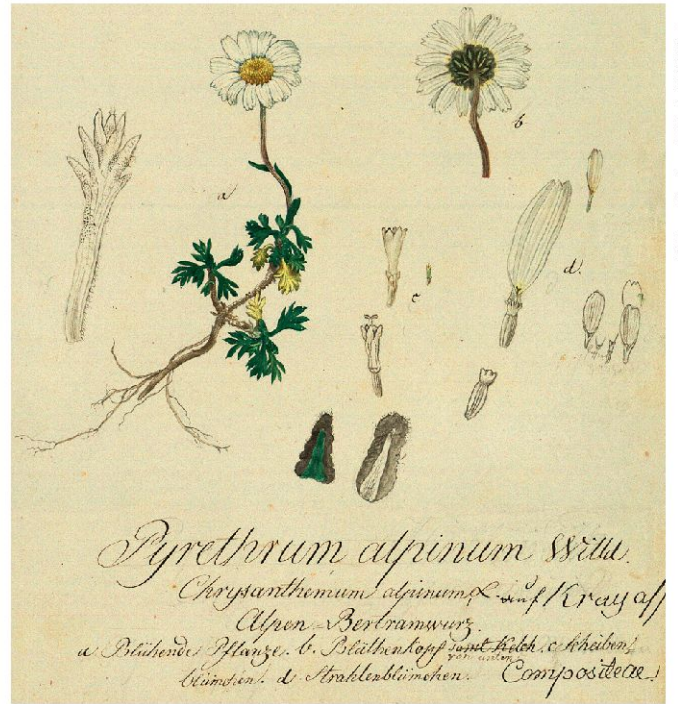 b
a
d.
c
Pyrethrum alpinum Willd.
Chrysanthemum alpinum L. auf Kray
Alpen-Bertramwurz.
a Blühende Pflanze. b. Blüthenkopf samt Kelch. c. Scheiben/
von unten
blümchen. d Strahlenblümchen. Compositeae